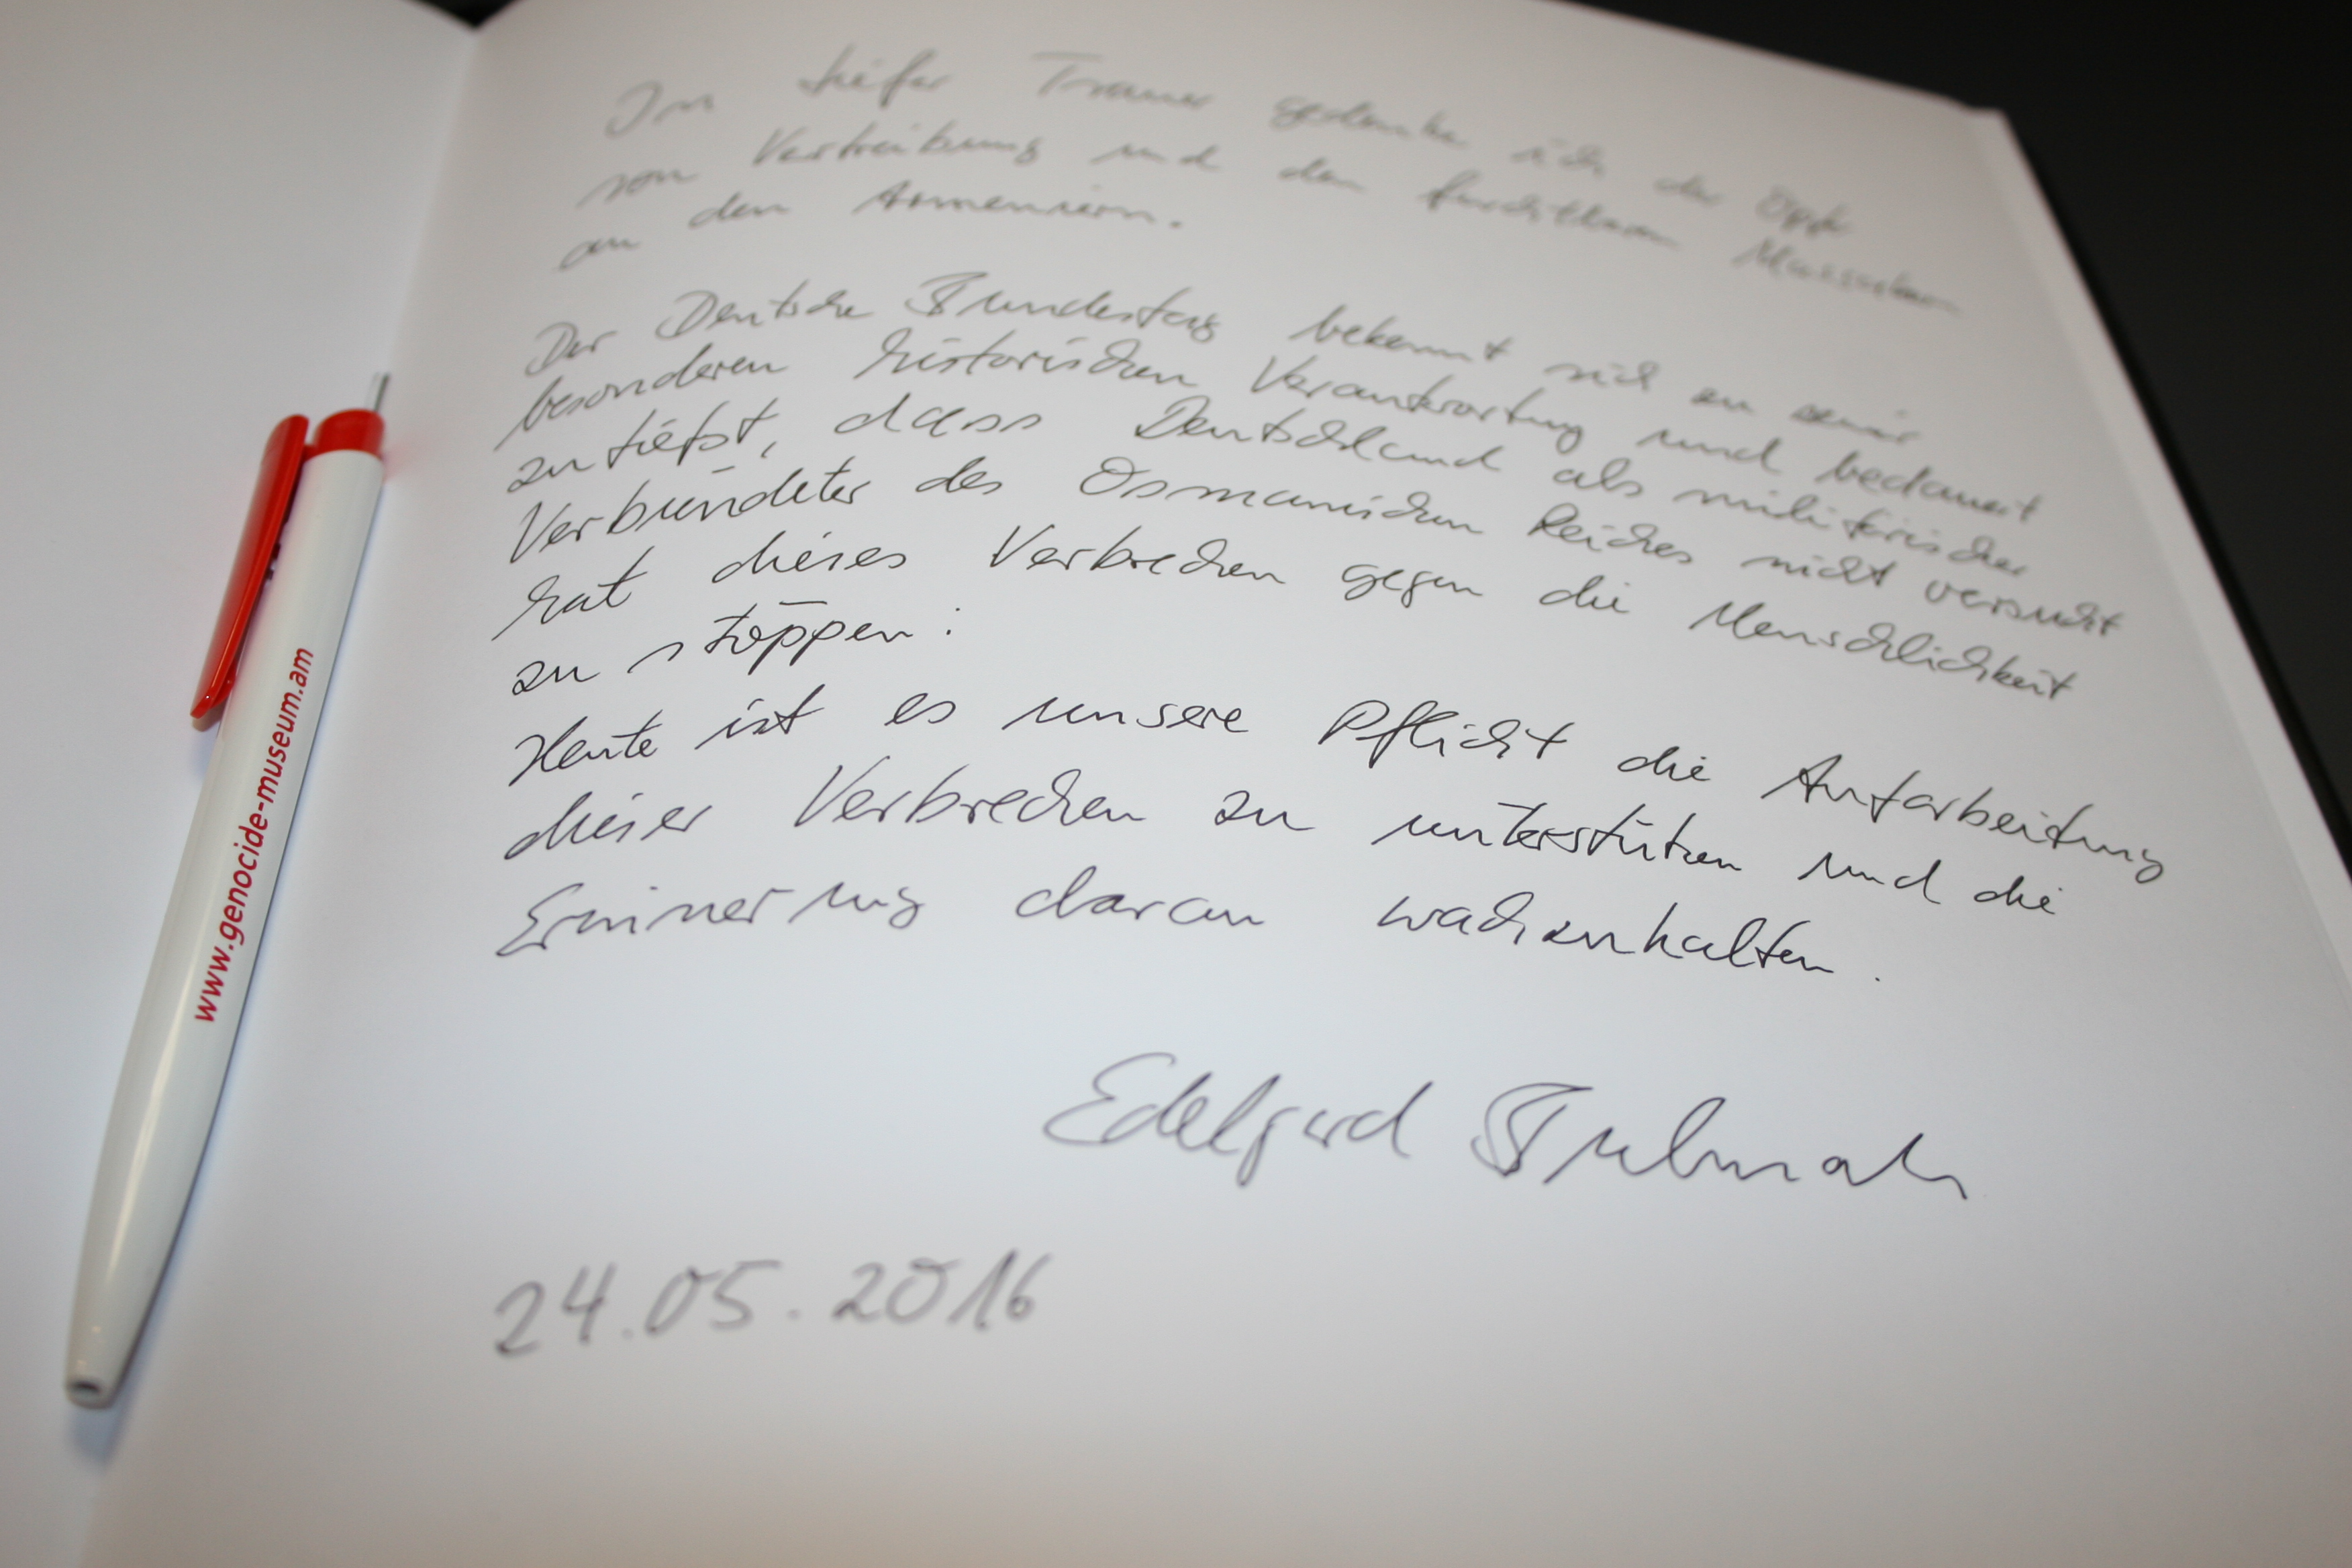 In tiefer Trauer gedenke ich der Opfer
von Vertreibung und den furchtbaren Massakern
an den Armeniern.
Der Deutsche Bundestag bekennt sich zu seiner
besonderen historischen Verantwortung und bedauert
zutiefst, dass Deutschland als militärischer
Verbündeter des Osmanischen Reiches nicht versucht
hat dieses Verbrechen gegen die Menschlichkeit
zu stoppen.
Heute ist es unsere Pflicht die Aufarbeitung
dieser Verbrechen zu unterstützen und die
Erinnerung daran wachzuhalten.
Edelgard Bulmahn
24.05.2016
www.genocide-museum.am